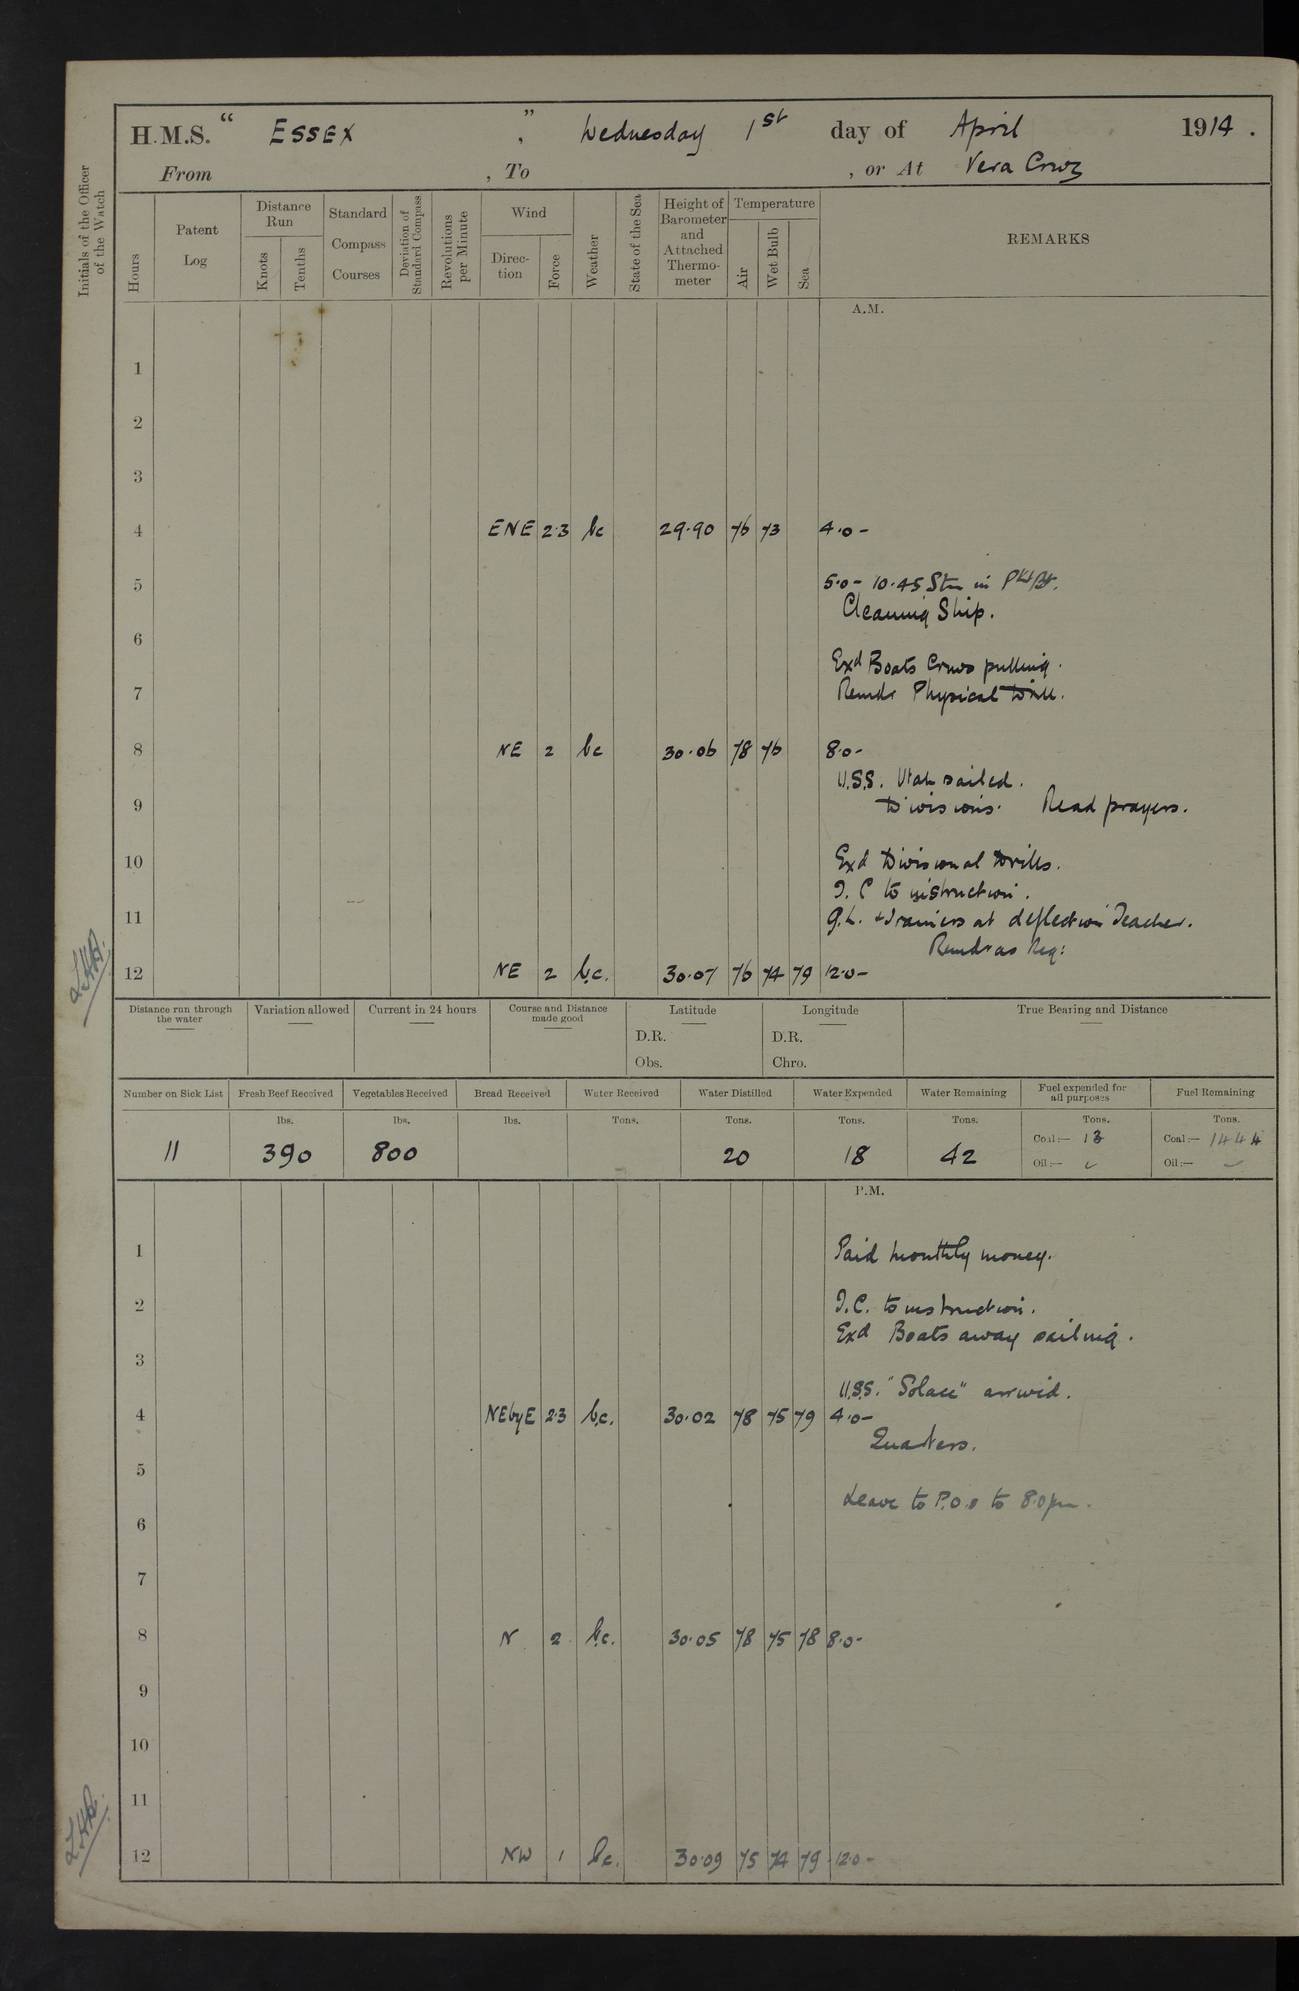 H.M.S. " ESSEX ", Wednesday 1st day of April 1914.
From , To , or At Vera Cruz
Initials of the Officer of the Watch
Hours
Patent Log
Distance Run
Knots
Tenths
Standard Compass Courses
Deviation of Standard Compass
Revolutions per Minute
Wind
Direc-tion
Force
Weather
State of the Sea
Height of Barometer and Attached Thermo-meter
Temperature
Air
Wet Bulb
Sea
REMARKS
A.M.
1
2
3
4 ENE 2.3 bc 29.90 76 73 4.0-
5 5.0- 10.45 Stm in
Cleaning Ship.
6
Exd Boats Crews pulling.
7 Remdr Physical Drill.
8 NE 2 bc 30.06 78 76 8.0-
U.S.S. Utah sailed.
9 Divisions. Read prayers.
10 Exd Divisional Drills.
I.C to instruction.
11 G.L. & Trainers at deflection Teacher.
Remdr as Req:
12 NE 2 b.c. 30.07 76 74 79 12.0-
Distance run through the water
Variation allowed
Current in 24 hours
Course and Distance made good
Latitude
D.R.
Obs.
Longitude
D.R.
Chro.
True Bearing and Distance
Number on Sick List
Fresh Beef Received
Vegetables Received
Bread Received
Water Received
Water Distilled
Water Expended
Water Remaining
Fuel expended for all purposes
Fuel Remaining
lbs. lbs. lbs. Tons. Tons. Tons. Tons. Tons. Tons.
11 390 800 20 18 42
Coal:— 13 Coal:— 1444
Oil:— Oil:—
P.M.
1 Paid monthly money.
2 I.C. to instruction.
Exd Boats away sailing.
3
U.S.S. "Solace" arrived.
4 NEbyE 2.3 b.c. 30.02 78 75 79 4.0-
Quarters.
5
Leave to P.O.s to 8.0pm.
6
7
8 N 2 b.c. 30.05 78 75 78 8.0-
9
10
11
12 NW 1 b.c. 30.09 75 74 79 12.0-